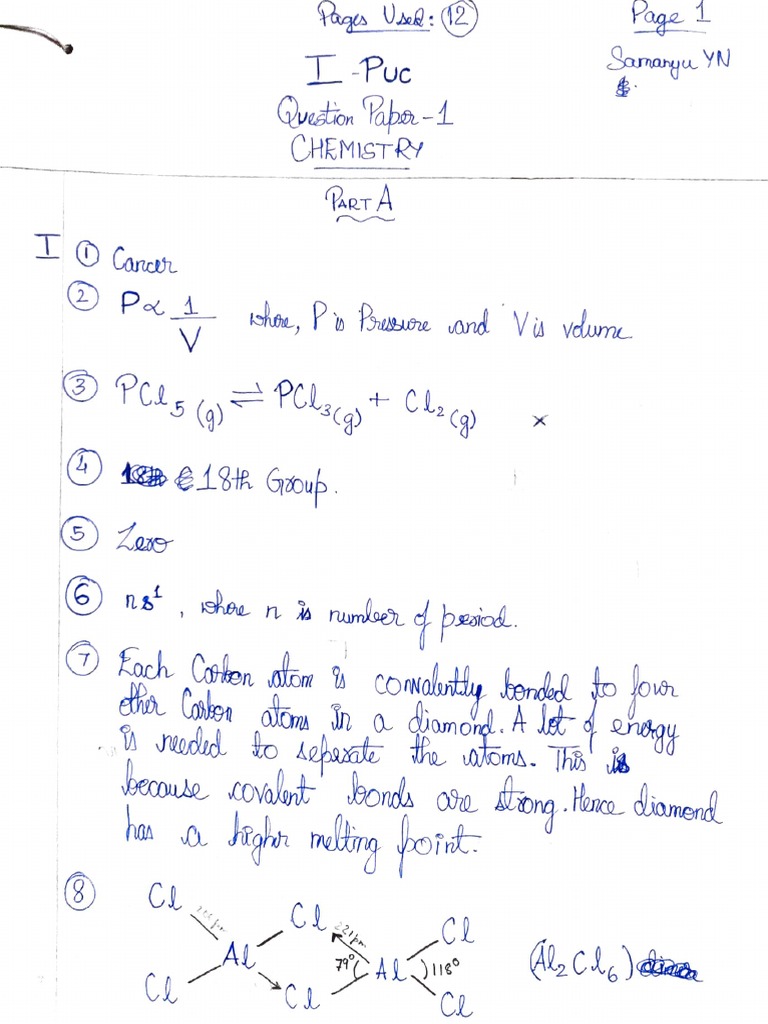 Pages Used: 12
Page 1
Samanyu YN
I - PUC
Question Paper-1
CHEMISTRY
PART A
I
① Cancer
② P ∝ 1/V where, P is Pressure and V is volume
③ PCl5 (g) ⇌ PCl3 (g) + Cl2 (g) ×
④ 18th Group.
⑤ Zero
⑥ ns¹, where n is number of period.
⑦ Each Carbon atom is convalently bonded to four
other Carbon atoms in a diamond. A lot of energy
is needed to seperate the atoms. This is
because covalent bonds are strong. Hence diamond
has a higher melting point.
⑧ Cl 206 pm Cl 221 pm Cl
Al 79° Al 118° (Al2Cl6)
Cl Cl Cl